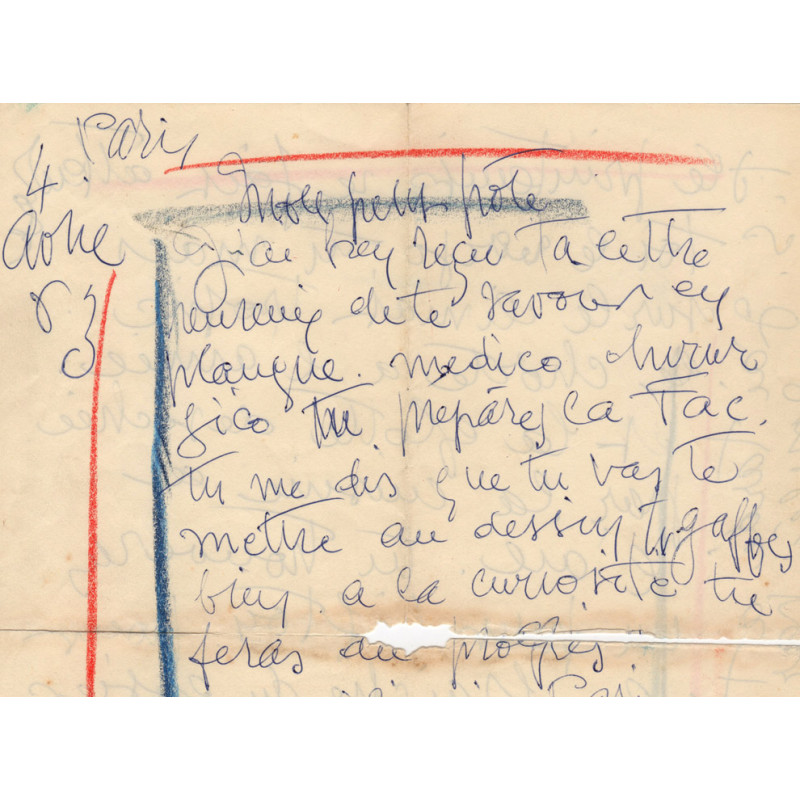 Paris
4
Mon petit pote
j'ai bien reçu ta lettre
de te savoir en
planque. medico chirur
gico tu prepares la Tac.
tu me dis que tu vas te
mettre au dessin, tu gaffes
bien a la curiosité tu
feras du progrès.